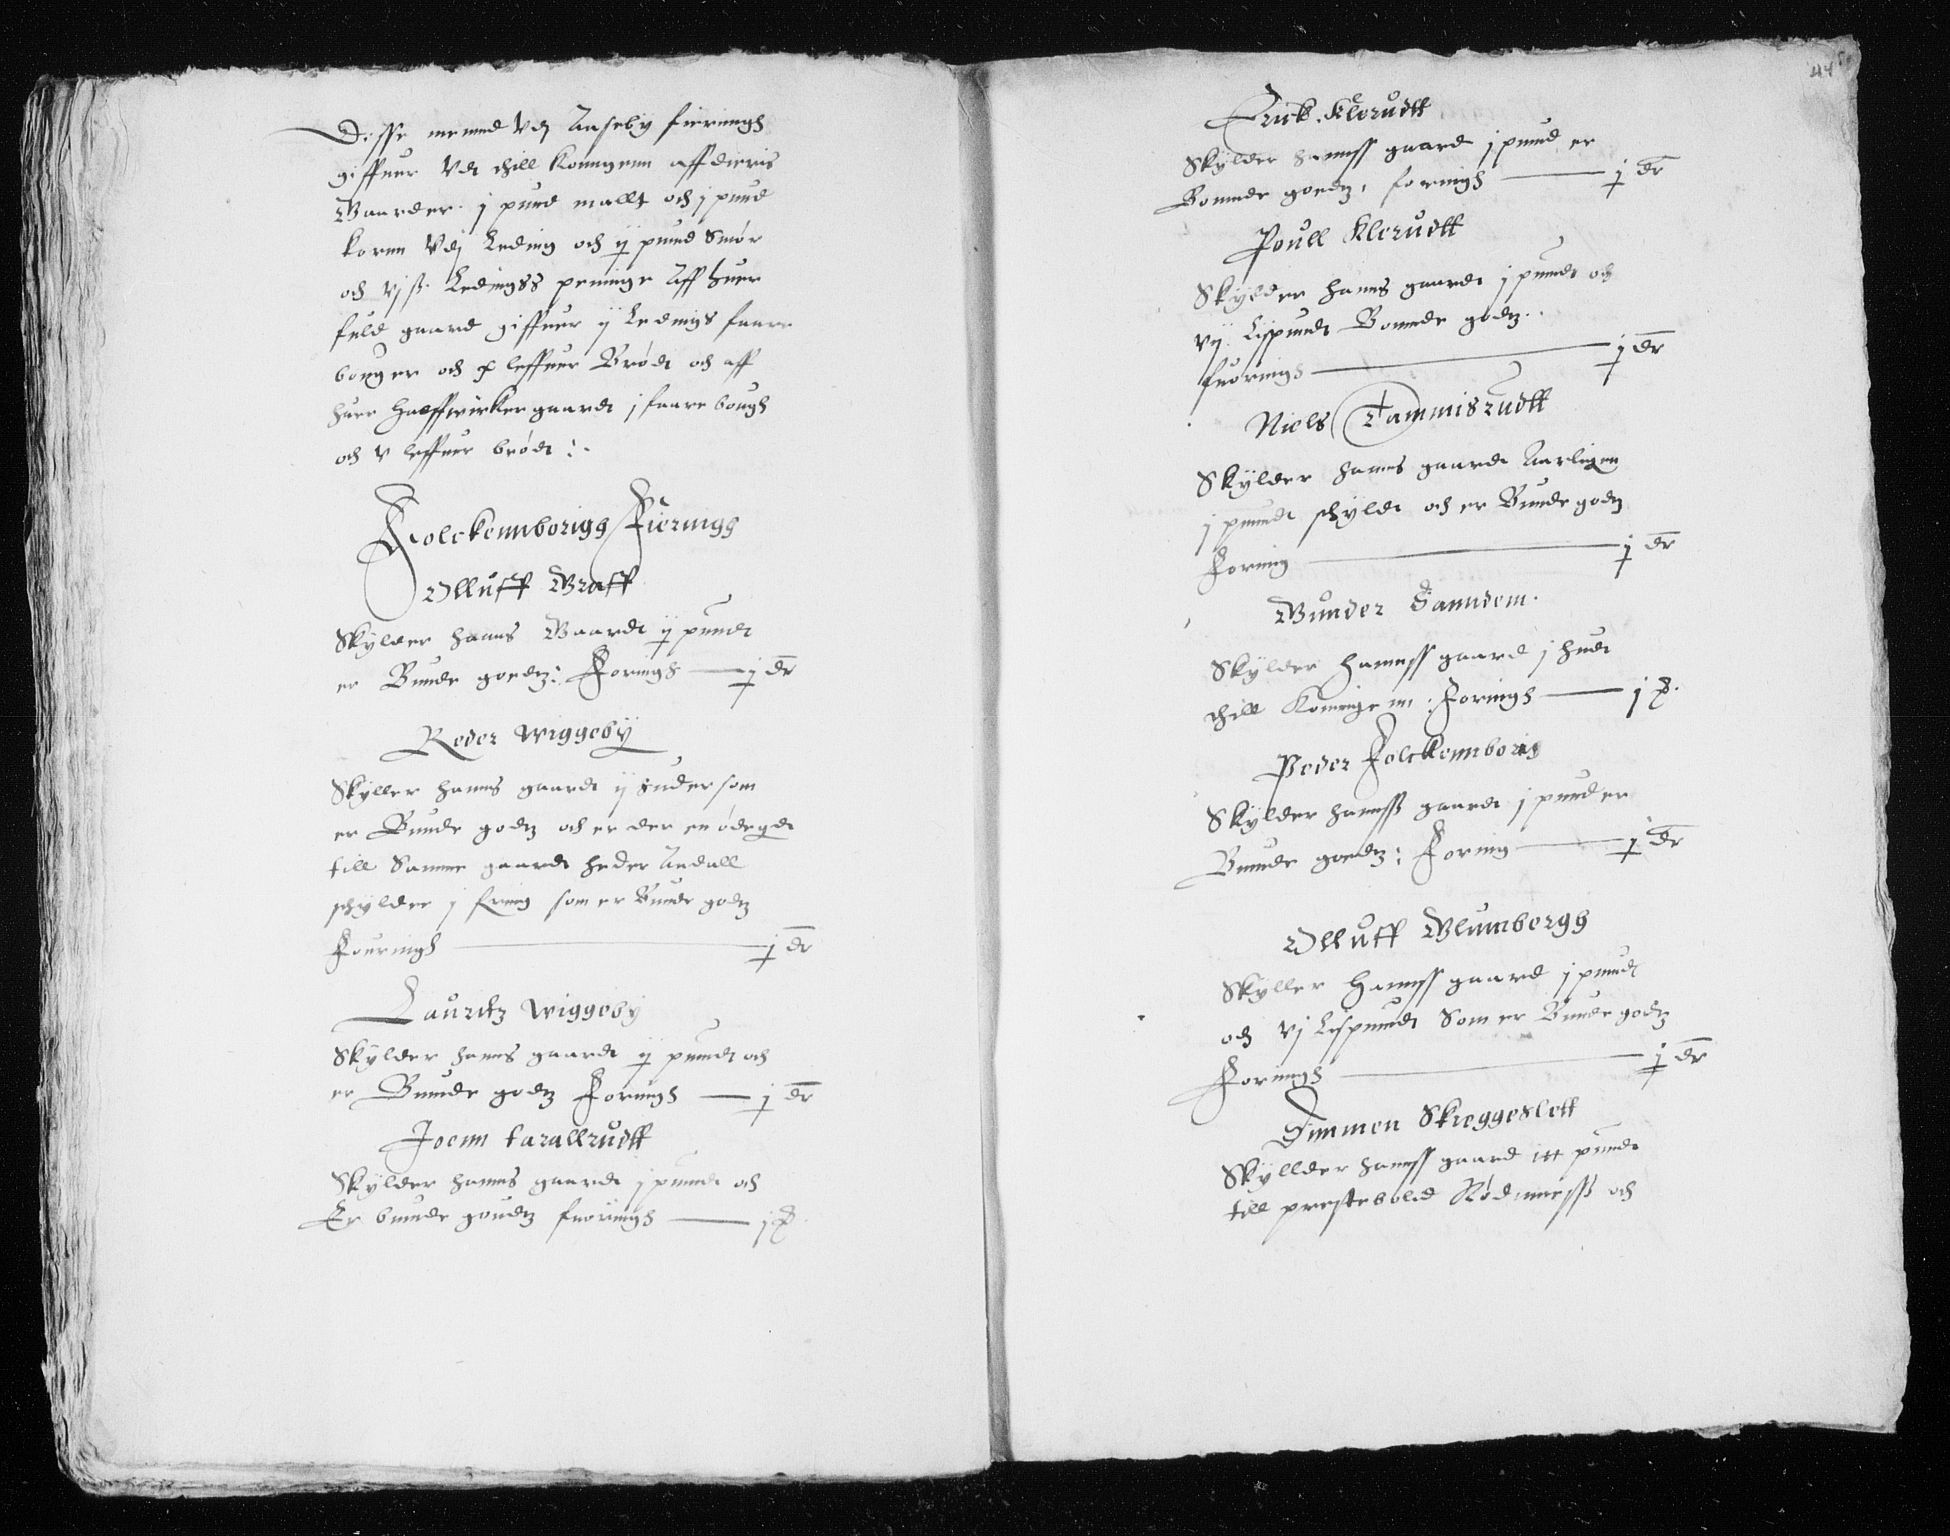 Disse memnd Vdj Aaseby fieringh
giffuer Vdt thill Konngenn aff dieris
Gaarder j pund mallt och j pund
kornn Vdj Leding och ij pund Smør
och vj ß Ledingss peninge Aff huer
fuld gaard giffuer ij Ledings faare
bouger och x leffuer Brødt och aff
huer Halffwirker gaardt j faare bough
och v leffuer brødt :.
Folckennborigs Fieringh
Olluff Graff
Skylder hanns Gaardt ij pundt
er Bunde goedtz: Foringh — j dr
Reder Wiggeby
Skyller hanns gaardt ij huder som
er Bunde godtz och er der en ødegdt
till Samme gaardt heder Aadall
schylder j fring som er Bunde godtz
Fouringh — j dr
Lauritz Wiggeby
Skylder hanns gaardt ij pundt och
er Bunde godtz Foringh — j dr
Joenn tarallrudtt
Skylder hanns gaardt j pundt och
Er bunde goudtz fuoringh — j
44
Erick Klerudtt
Skylder hanns gaard j pund er
Bonnde goedtz, foringh — j dr
Poull Klerudtt
Skylder hanns gaardt j pundt och
vij Lispundt Bonnde godtz.
fuoringh — j dr
Niels Tammisrudtt
Skylder hanns gaardt Aarligen
j pundt schyldt och er Bunde godtz
Foring — j dr
Gunder Sanndem.
Skylder hannss gaard j hudt
thill Konningenn: Foringh — j
Peder Folckennborig
Skylder hannss gaardt j pund er
Bunde goedtz: Foring — j dr
Olluff Blumbergh
Skyller hannss gaard j pundt
och vj Lispundt Som er Bunde godtz
Foringh — j dr
Simmen Skieggeslett
Skyllder hannss gaard itt pundt
till prestebolid Rødnness och